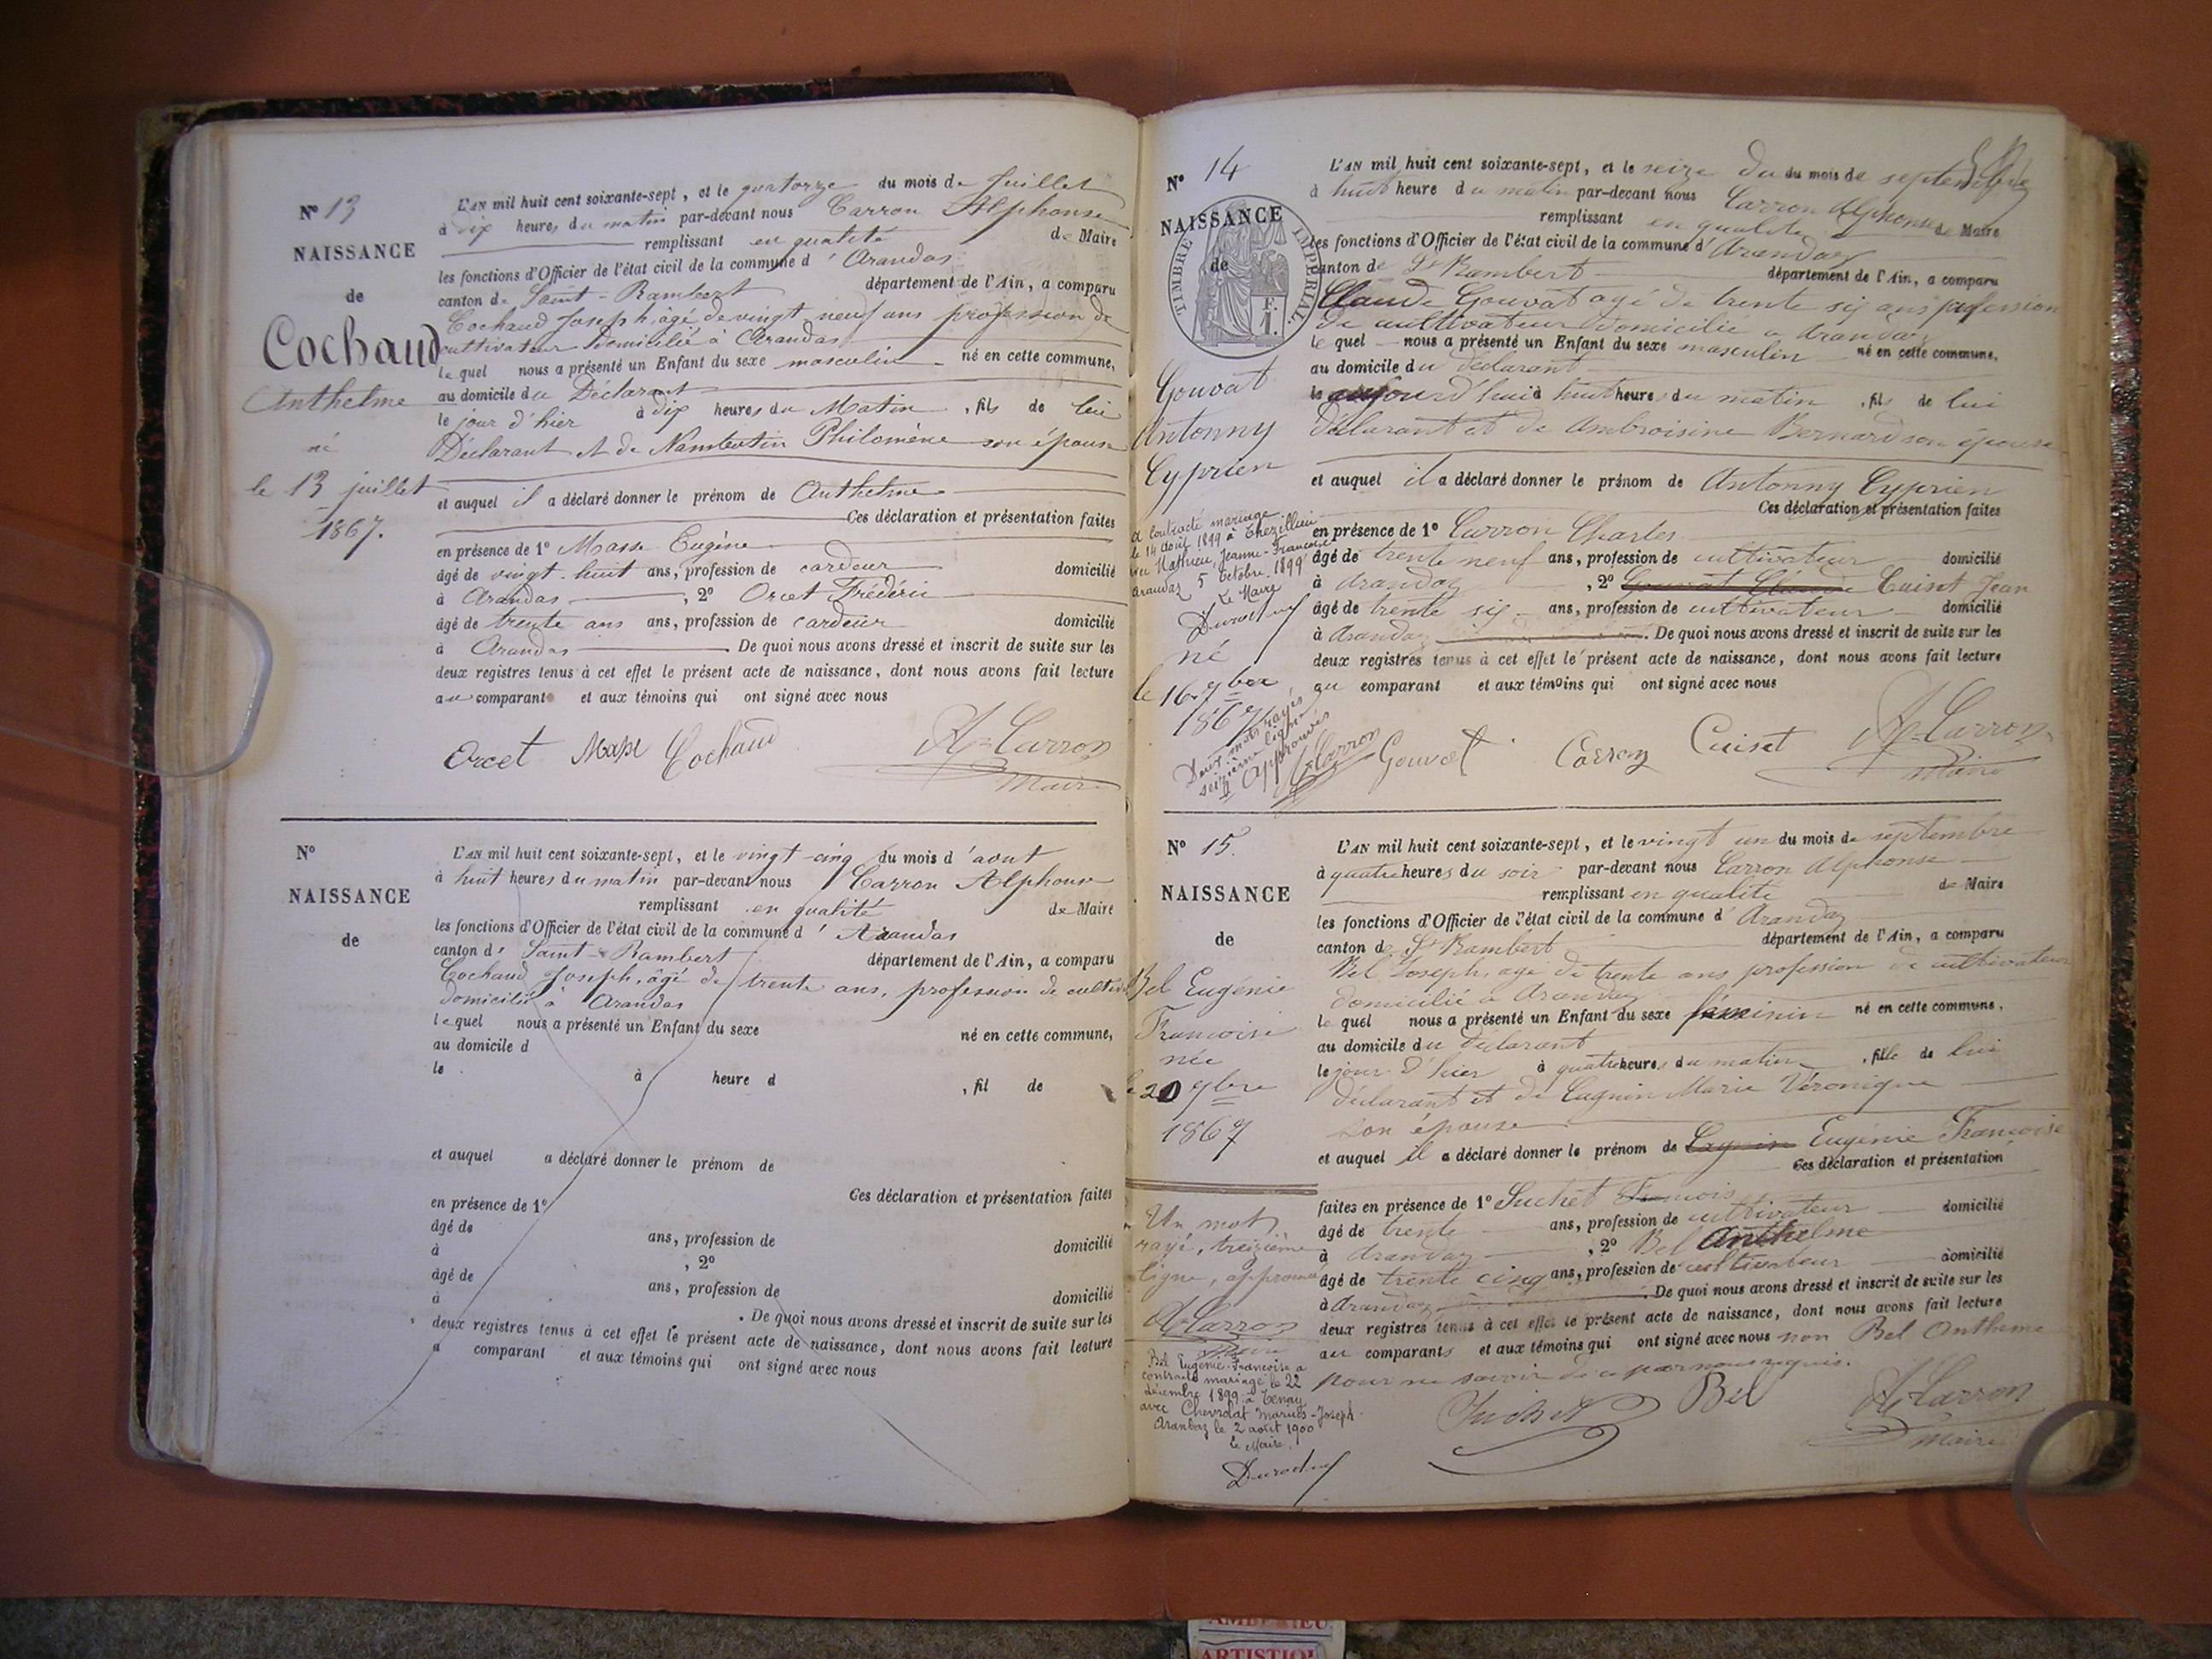 N° 13
NAISSANCE
de
Cochaud
Anthelme
né
le 13 juillet
1867.
L'AN mil huit cent soixante-sept, et le quatorze du mois de Juillet
à dix heures du matin par-devant nous Carron Alphonse
remplissant en qualité de Maire
les fonctions d'Officier de l'état civil de la commune d'Arandas
canton de Saint-Rambert département de l'Ain, a comparu
Cochaud Joseph, âgé de vingt neuf ans profession de
cultivateur domicilié à Arandas
lequel nous a présenté un Enfant du sexe masculin né en cette commune,
au domicile du Déclarant
le jour d'hier à dix heures du Matin, fils de lui
Déclarant et de Nambottin Philomène son épouse
et auquel il a déclaré donner le prénom de Anthelme
Ces déclaration et présentation faites
en présence de 1° Masse Eugène
âgé de vingt-huit ans, profession de cardeur domicilié
à Arandas, 2° Orcet Frédéric
âgé de trente ans ans, profession de cardeur domicilié
à Arandas. De quoi nous avons dressé et inscrit de suite sur les
deux registres tenus à cet effet le présent acte de naissance, dont nous avons fait lecture
au comparant et aux témoins qui ont signé avec nous
Orcet Masse Cochaud A. Carron
Maire
N°
NAISSANCE
de
L'AN mil huit cent soixante-sept, et le vingt-cinq du mois d'aout
à huit heures du matin par-devant nous Carron Alphonse
remplissant en qualité de Maire
les fonctions d'Officier de l'état civil de la commune d'Arandas
canton de Saint-Rambert département de l'Ain, a comparu
Cochaud Joseph, âgé de trente ans, profession de
domicilié à Arandas
lequel nous a présenté un Enfant du sexe né en cette commune,
au domicile d
le à heure d, fil de
et auquel a déclaré donner le prénom de
Ces déclaration et présentation faites
en présence de 1°
âgé de ans, profession de domicilié
à, 2°
âgé de ans, profession de domicilié
à. De quoi nous avons dressé et inscrit de suite sur les
deux registres tenus à cet effet le présent acte de naissance, dont nous avons fait lecture
a comparant et aux témoins qui ont signé avec nous
N° 14
NAISSANCE
de
TIMBRE IMPERIAL
F.
1.
Gouvat
Antonny
Cyprien
a contracté mariage
le 14 août 1899 à Thezillieu
avec Jeanne-Françoise
Arandaz 5 octobre 1899
Le Maire
né
le 16 7bre
1867
Deux mots rayés
seizième ligne
approuvés
A. Carron
L'AN mil huit cent soixante-sept, et le seize du du mois de septembre
à huit heure du matin par-devant nous Carron Alphonse
remplissant en qualité de Maire
les fonctions d'Officier de l'état civil de la commune d'Arandaz
canton de St Rambert département de l'Ain, a comparu
Claude Gouvat agé de trente six ans profession
de cultivateur domicilié a Arandaz
lequel nous a présenté un Enfant du sexe masculin né en cette commune,
au domicile du déclarant
le aujourd'hui à huit heures du matin, fils de lui
déclarant et de Ambroisine Bernard son épouse
et auquel il a déclaré donner le prénom de Antonny Cyprien
Ces déclaration et présentation faites
en présence de 1° Carron Charles
âgé de trente neuf ans, profession de cultivateur domicilié
à Arandaz, 2° Gouvat Claude Cuiset Jean
âgé de trente six ans, profession de cultivateur domicilié
à Arandaz. De quoi nous avons dressé et inscrit de suite sur les
deux registres tenus à cet effet le présent acte de naissance, dont nous avons fait lecture
au comparant et aux témoins qui ont signé avec nous
Gouvat Carron Cuiset A. Carron
Maire
N° 15.
NAISSANCE
de
Bel Eugénie
Françoise
née
le 20 7bre
1867
Un mot
rayé, treizième
ligne, approuvé
A. Carron
Maire
Bel Eugénie-Françoise a
contracté mariage le 22
décembre 1899 à Tenay
avec Chevrolat Marius-Joseph
Arandaz le 2 août 1900
Le Maire.
L'AN mil huit cent soixante-sept, et le vingt un du mois de septembre
à quatre heures du soir par-devant nous Carron Alphonse
remplissant en qualité de Maire
les fonctions d'Officier de l'état civil de la commune d'Arandaz
canton de St Rambert département de l'Ain, a comparu
Bel Joseph, age de trente ans profession de cultivateur
domicilié a Arandaz
lequel nous a présenté un Enfant du sexe féminin né en cette commune,
au domicile du déclarant
le jour d'hier à quatre heures du matin, fille de lui
déclarant et de Cagnin Marie Véronique
son épouse
et auquel il a déclaré donner le prénom de Cagnin Eugénie Françoise
Ces déclaration et présentation
faites en présence de 1° Suchet François
âgé de trente ans, profession de cultivateur domicilié
à Arandaz, 2° Bel Anthelme
âgé de trente cinq ans, profession de cultivateur domicilié
à Arandaz. De quoi nous avons dressé et inscrit de suite sur les
deux registres tenus à cet effet le présent acte de naissance, dont nous avons fait lecture
au comparants et aux témoins qui ont signé avec nous non Bel Anthelme
pour ne savoir de ce par nous requis.
Suchet Bel A. Carron
Maire
ARTISTIQ